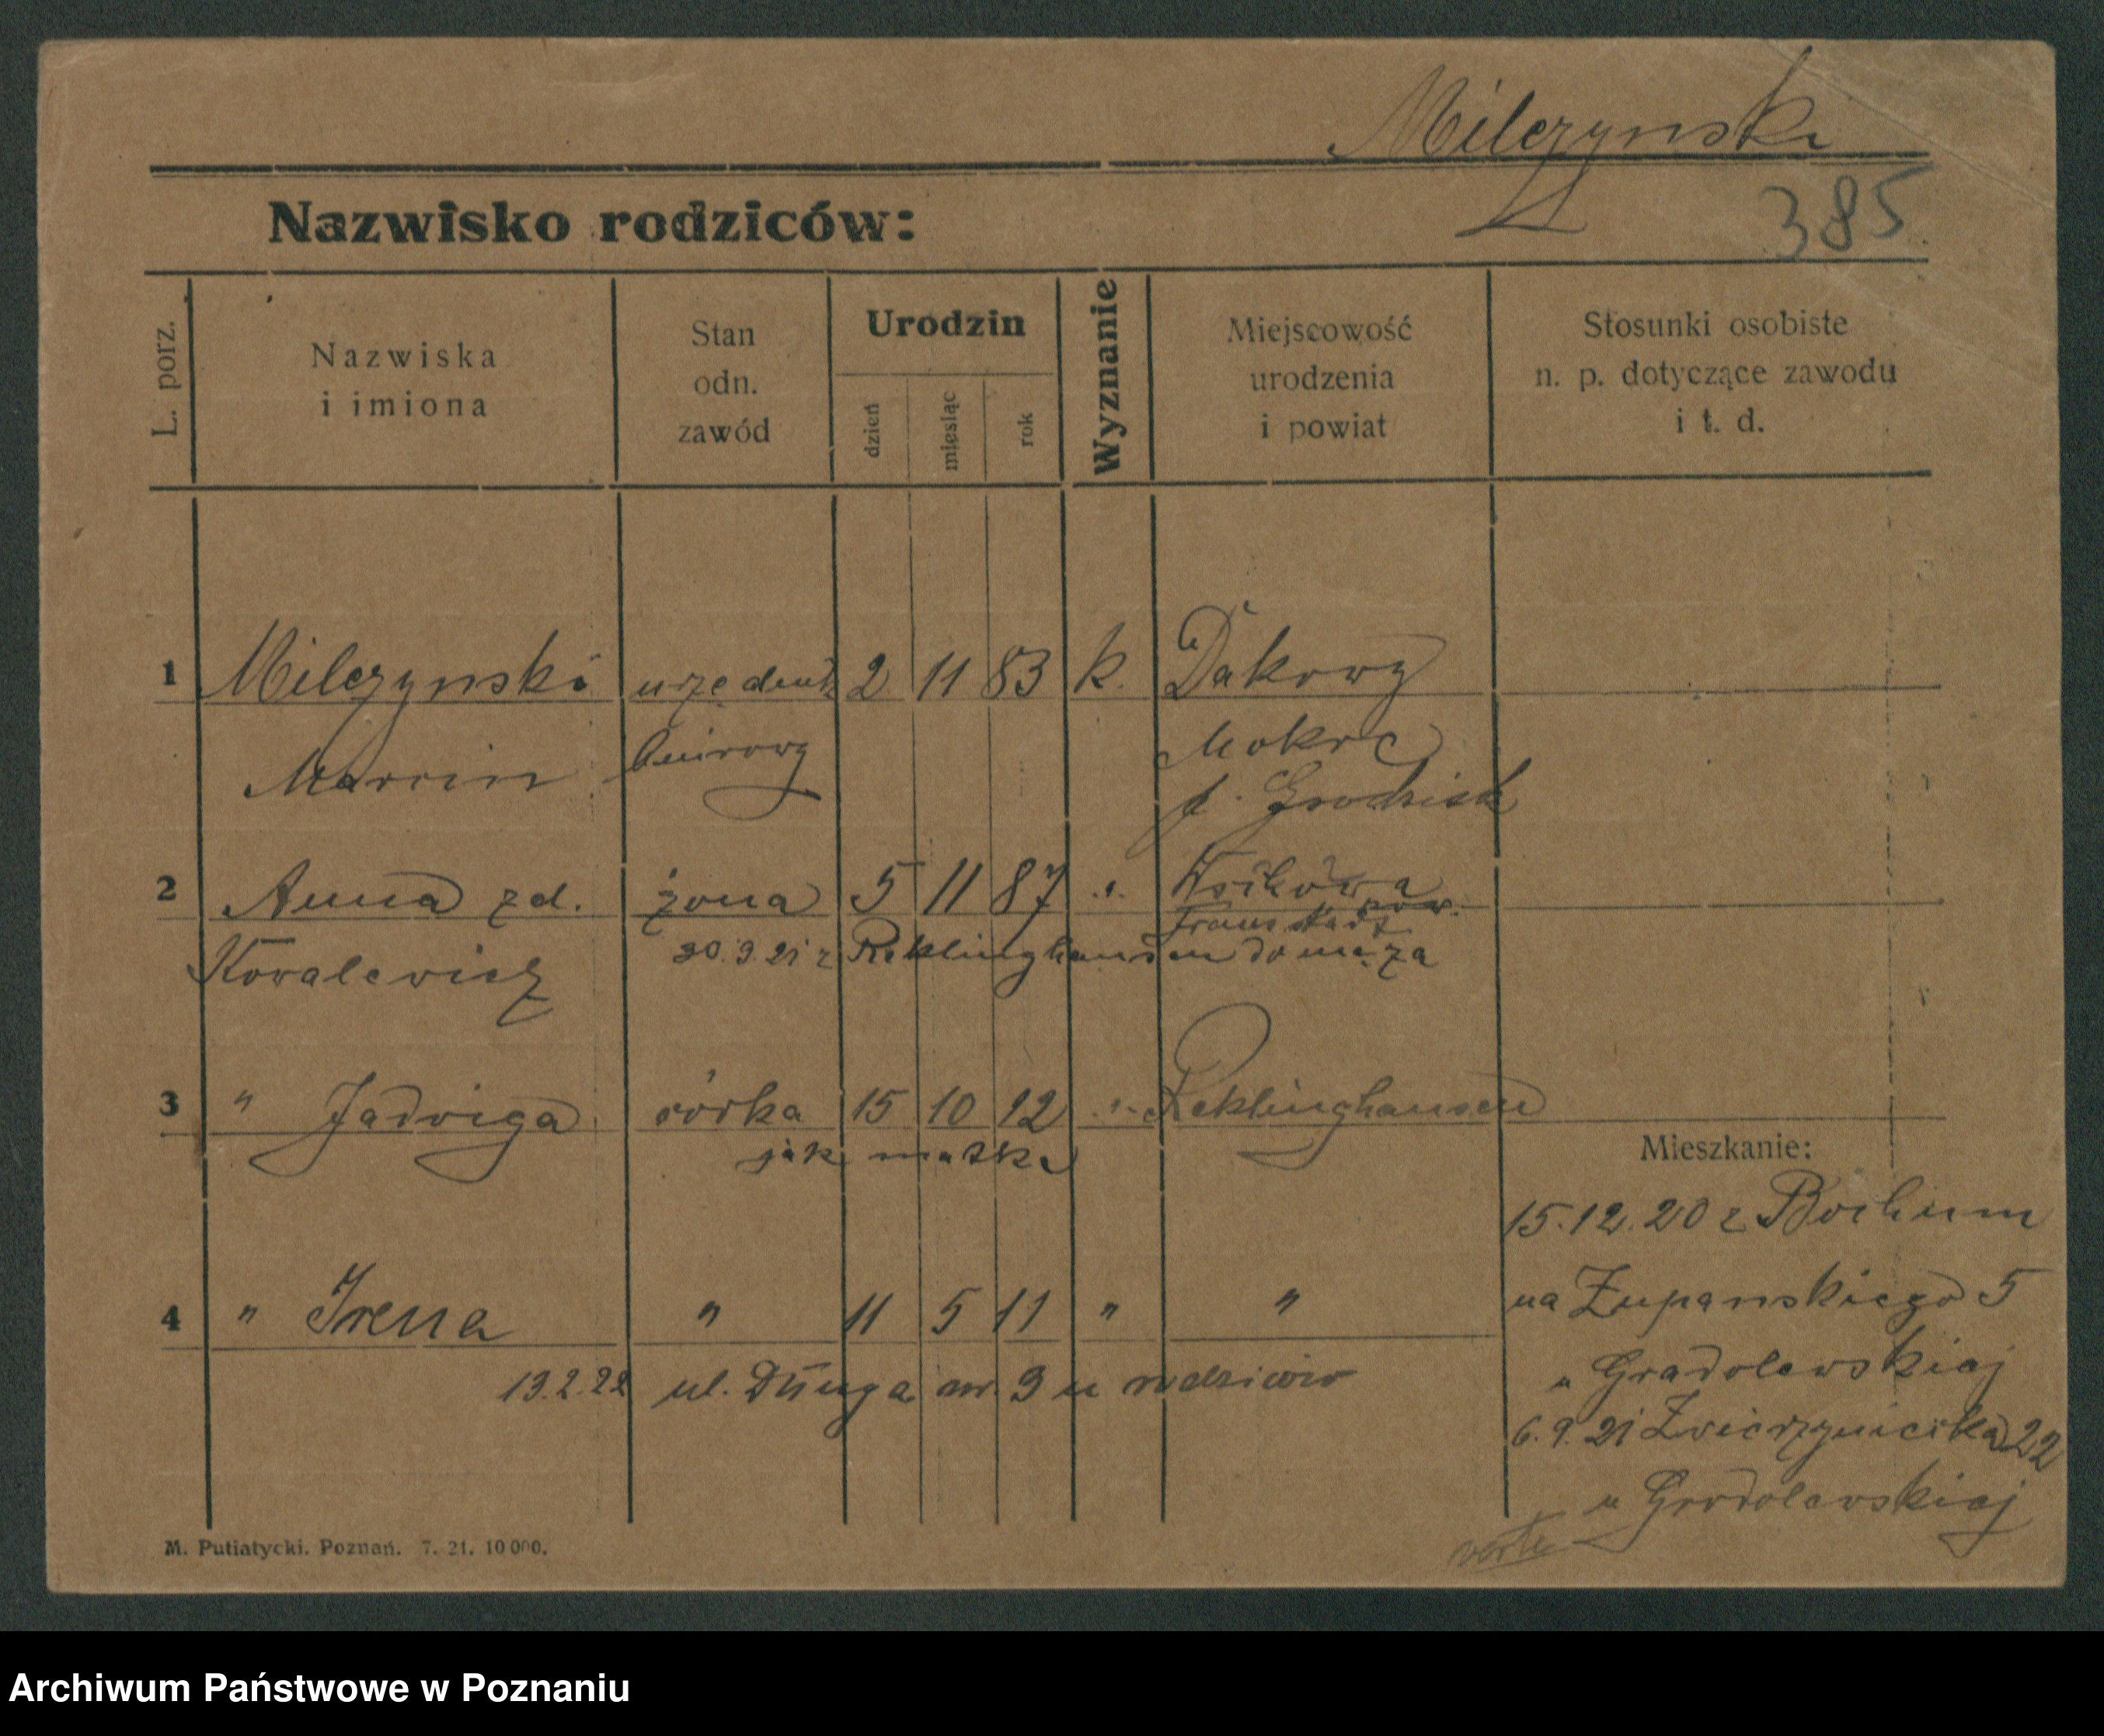 Milczynski
385
Nazwisko rodziców:
L. porz.
Nazwiska
i imiona
Stan
odn.
zawód
Urodzin
dzień
miesiąc
rok
Wyznanie
Miejscowość
urodzenia
i powiat
Stosunki osobiste
n. p. dotyczące zawodu
i t. d.
1 Milczynski urzędnik 2 11 83 k. Dakowy
Marcin biurowy Mokre
p. Grodzisk
2 Anna zd. żona 5 11 87 "
Fraustadt pow.
Kowalewicz 30.9.21 z Reklinghausen do męża
3 " Jadwiga córka 15 10 12 " Reklinghausen
jak matka
Mieszkanie:
15.12.20 z Bochum
na Zupanskiego 5
4 " Irena " 11 5 11 " "
u Gradolewskiej
13.2.22 ul. Długa nr. 9 u rodziców
6.9.21 Zwierzyniecka 22
u Grodolewskiej
verte
M. Putiatycki. Poznań. 7. 21. 10000.
Archiwum Państwowe w Poznaniu